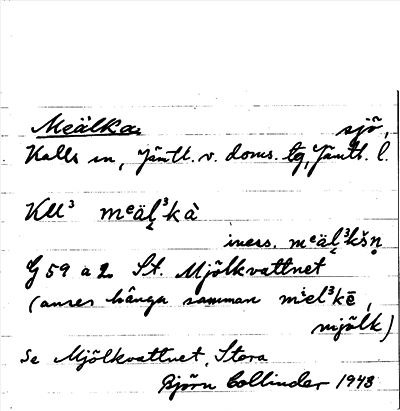 Meälka, sjö,
Kalls sn, Jämtl. v. doms. tg, Jämtl. l.
KU³ mᵉäl̨³kà
iness. mᵉäl̨³kšn̥
G 59 a 2 St. Mjölkvattnet
(anses hänga samman mⁱel³kē,
mjölk)
Se Mjölkvattnet, Stora
Björn Collinder 1943